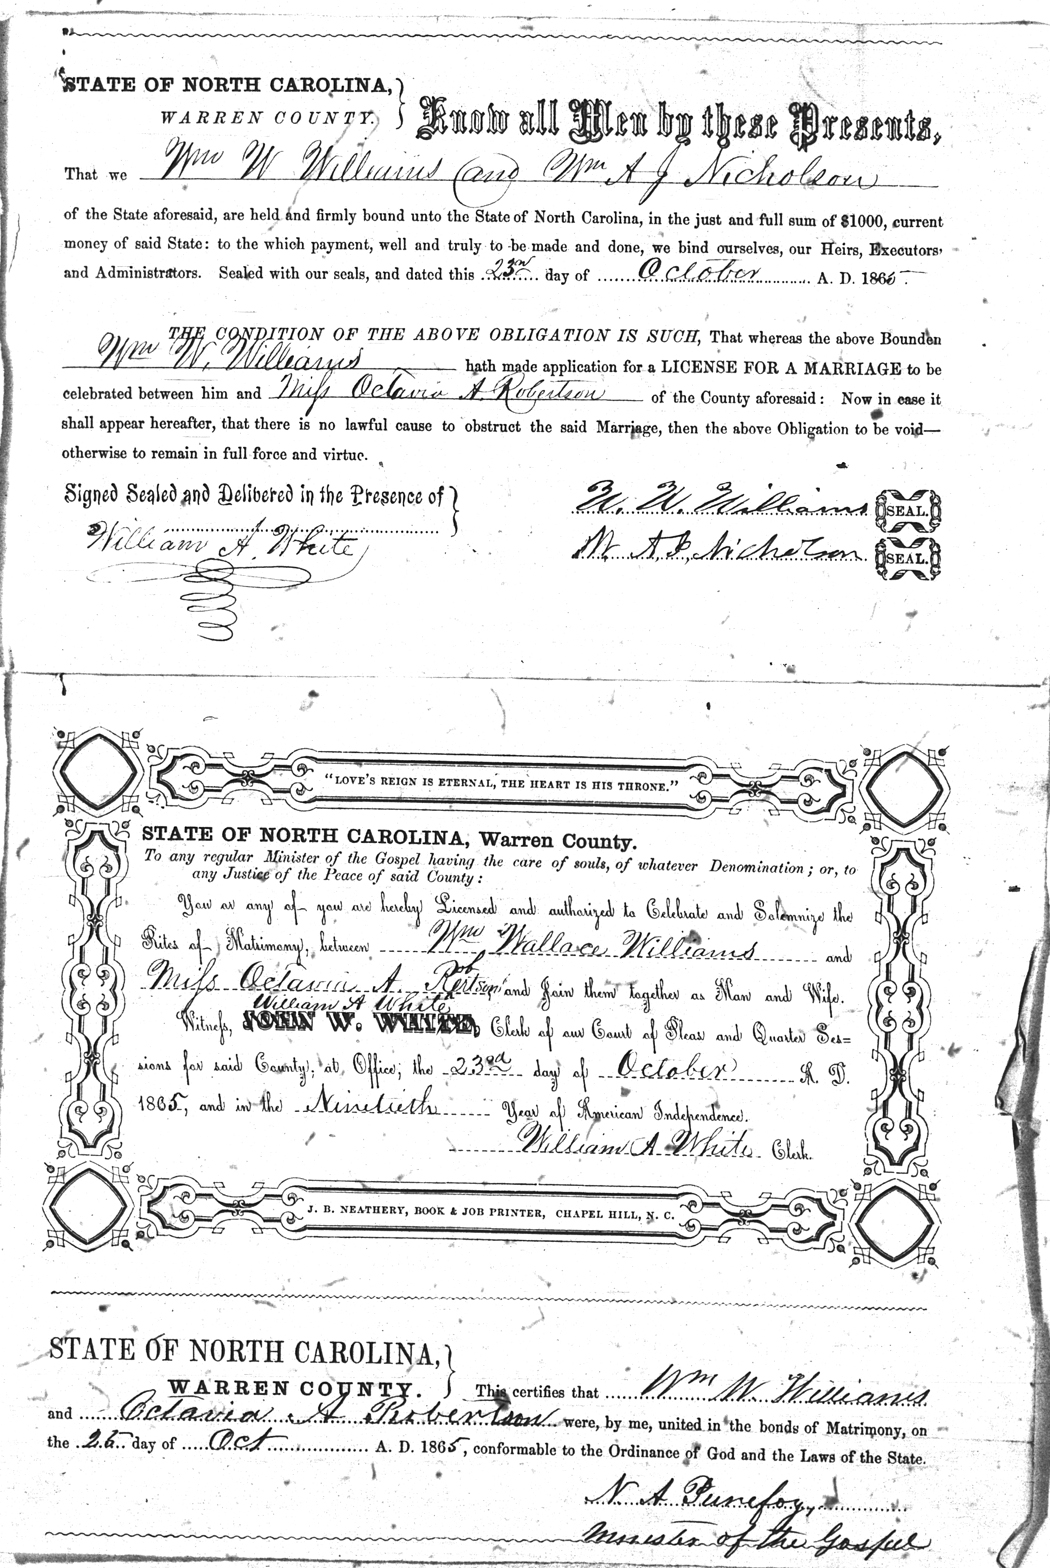 STATE OF NORTH CAROLINA,
WARREN COUNTY.
Know all Men by these Presents,
That we Wm W Williams and Wm A J Nicholson
of the State aforesaid, are held and firmly bound unto the State of North Carolina, in the just and full sum of $1000, current
money of said State: to the which payment, well and truly to be made and done, we bind ourselves, our Heirs, Executors,
and Administrators. Sealed with our seals, and dated this 23rd day of October A. D. 1865.
THE CONDITION OF THE ABOVE OBLIGATION IS SUCH, That whereas the above Bounden
Wm W. Williams hath made application for a LICENSE FOR A MARRIAGE to be
celebrated between him and Miss Octavia A Robertson of the County aforesaid: Now in case it
shall appear hereafter, that there is no lawful cause to obstruct the said Marriage, then the above Obligation to be void—
otherwise to remain in full force and virtue.
Signed Sealed and Delibered in the Presence of
William A. White
W. W. Williams SEAL.
W. A. J. Nicholson SEAL.
"LOVE'S REIGN IS ETERNAL, THE HEART IS HIS THRONE."
STATE OF NORTH CAROLINA, Warren County.
To any regular Minister of the Gospel having the care of souls, of whatever Denomination; or, to
any Justice of the Peace of said County:
You or any of you are hereby Licensed and authorized to Celebrate and Solemnize the
Rites of Matrimony, between Wm Wallace Williams and
Miss Octavia A. Robertson and Join them together as Man and Wife.
William A White
Witness, JOHN W. WHITE, Clerk of our Court of Pleas and Quarter Ses=
sions for said County, at Office, the 23rd day of October A. D.
1865, and in the Ninetieth Year of American Independence.
William A White Clerk.
J. B. NEATHERY, BOOK & JOB PRINTER, CHAPEL HILL, N. C.
STATE OF NORTH CAROLINA,
WARREN COUNTY.
This certifies that Wm W Williams
and Octavia A Robertson were, by me, united in the bonds of Matrimony, on
the 25 day of Oct A. D. 1865, conformable to the Ordinance of God and the Laws of the State.
N A Purefoy,
Minister of the Gospel